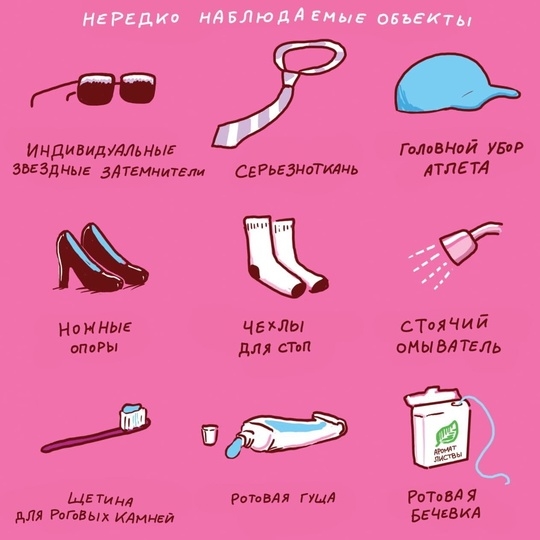 НЕРЕДКО НАБЛЮДАЕМЫЕ ОБЪЕКТЫ
ИНДИВИДУАЛЬНЫЕ
ЗВЕЗДНЫЕ ЗАТЕМНИТЕЛИ
СЕРЬЕЗНОТКАНЬ
ГОЛОВНОЙ УБОР
АТЛЕТА
НОЖНЫЕ
ОПОРЫ
ЧЕХЛЫ
ДЛЯ СТОП
СТОЯЧИЙ
ОМЫВАТЕЛЬ
ЩЕТИНА
ДЛЯ РОГОВЫХ КАМНЕЙ
РОТОВАЯ ГУЩА
АРОМАТ
ЛИСТВЫ
РОТОВАЯ
БЕЧЕВКА